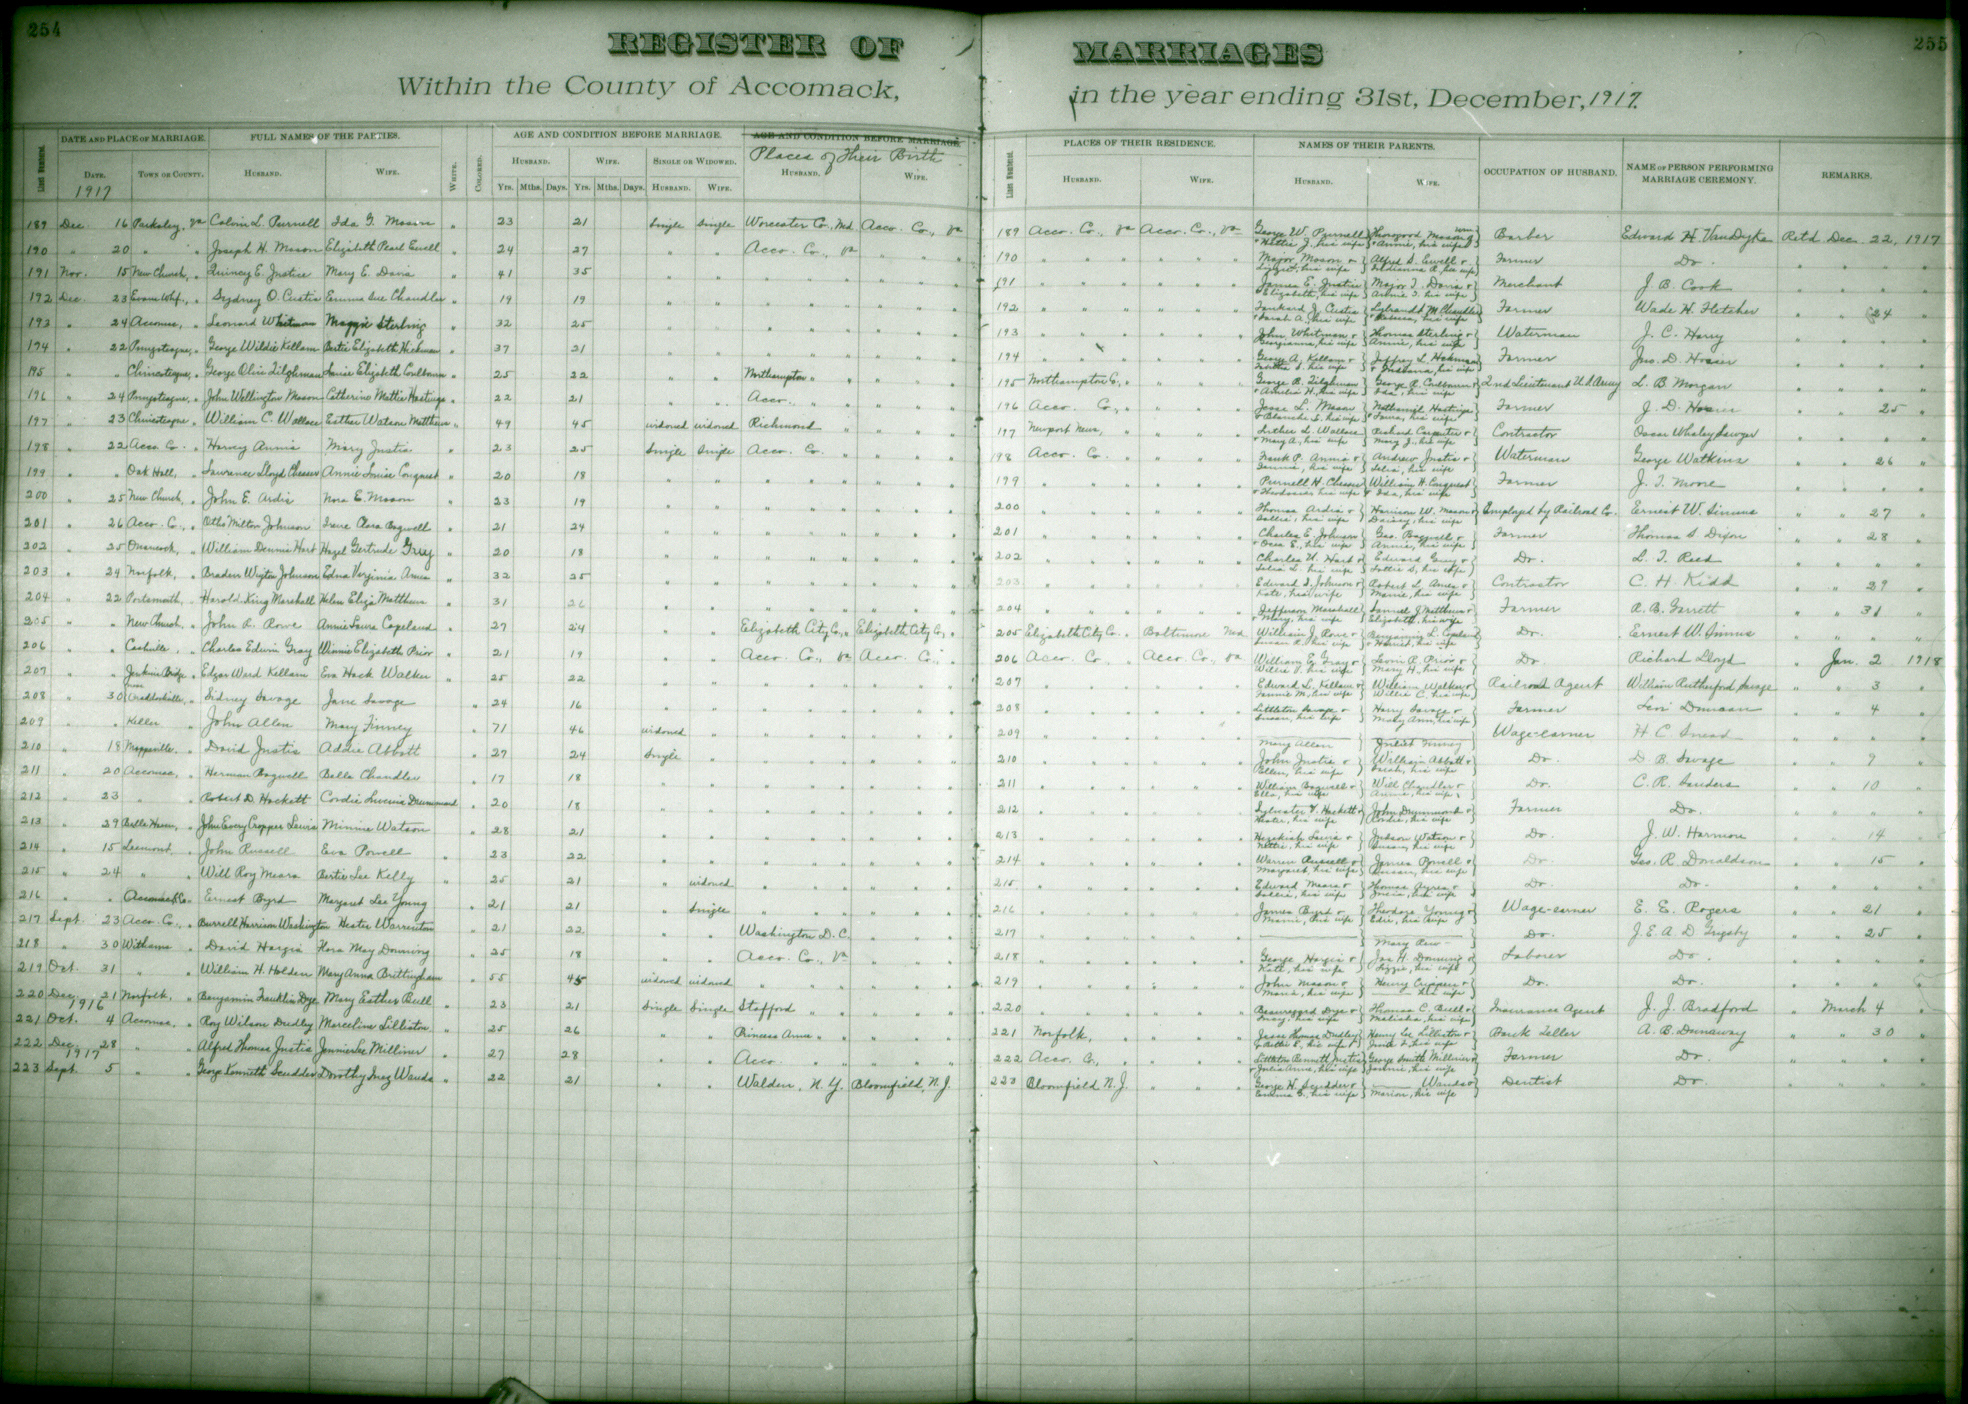 254
REGISTER OF MARRIAGES
255
Within the County of Accomack, in the year ending 31st, December, 1917.
Line Number. DATE AND PLACE OF MARRIAGE. FULL NAMES OF THE PARTIES. WHITE. COLORED. AGE AND CONDITION BEFORE MARRIAGE. AGE AND CONDITION BEFORE MARRIAGE. Line Number. PLACES OF THEIR RESIDENCE. NAMES OF THEIR PARENTS. OCCUPATION OF HUSBAND. NAME OF PERSON PERFORMING MARRIAGE CEREMONY. REMARKS.
Places of Their Birth
DATE. TOWN OR COUNTY. HUSBAND. WIFE. HUSBAND. WIFE. SINGLE OR WIDOWED. HUSBAND. WIFE. HUSBAND. WIFE. HUSBAND. WIFE.
1917 Yrs. Mths. Days. Yrs. Mths. Days. HUSBAND. WIFE.
189 Dec. 16 Parksley, Va Calvin L. Purnell Ida G. Mason " 23 21 Single Single Worcester Co., Md. Acco. Co., Va 189 Acco. Co., Va Acco. Co., Va George W. Purnell + Hettie J., his wife Barber Edward H. VanDyke Retd Dec. 22, 1917
190 " 20 " " Joseph H. Mason Elizabeth Pearl Ewell " 24 27 " " Acco. Co., Va " 190 Major Mason + his wife Alfred S. Ewell + his wife Farmer Do. " " "
191 Nov. 15 New Church, " Quincy E. Justice Mary E. Davis " 41 35 " " 191 James E. Justice + Elizabeth, his wife Major T. Davis + his wife Merchant J. B. Cook " " "
192 Dec. 23 " Sydney O. Custis Emma Sue Chandler " 19 19 " " 192 Custis + Sarah A., his wife M. Chandler + his wife Farmer Wade H. Fletcher " 24 "
193 " 24 Accomac, " Leonard Whitman Maggie Sterling " 32 25 " " 193 John Whitman + Georgianna, his wife Thomas Sterling + Annie, his wife Waterman J. C. Harry " " "
194 " 22 Pungoteague, " George Wildie Kellam Bertie Elizabeth Hickman " 37 21 " " 194 George A. Kellam + his wife Jeffrey L. Hickman + Indiana, his wife Farmer Jno. D. Hosier " " "
195 " " Chincoteague, " George Olin Tilghman Janie Elizabeth Culbourn " 25 22 " " Northampton " " 195 Northampton Co., " George B. Tilghman + his wife George R. Culbourn + Ida, his wife 2nd Lieutenant U.S. Army L. B. Morgan " " "
196 " 24 Pungoteague, " John Wellington Mason Catherine Mattie Hastings " 22 21 " " Acco. " 196 Acco. Co., " Jesse L. Mason + Blanche S., his wife Nathaniel Hastings + his wife Farmer J. D. Hosier " 25 "
197 " 23 Chincoteague " William C. Wallace Esther Watson Matthews " 49 45 widowed widowed Richmond " 197 Newport News, " Luther L. Wallace + Mary A., his wife Richard Carpenter + Mary J., his wife Contractor Oscar Whaley Sawyer " " "
198 " 22 Acco Co. " Harvey Annis Mary Justis " 23 25 Single Single Acco. Co. " 198 Acco. Co. " Frank P. Annis + Fannie, his wife Andrew Justis + his wife Waterman George Watkins " 26 "
199 " " Oak Hall, " Lawrence Lloyd Chesser Annie Louise Conquest " 20 18 " " 199 Purnell H. Chesser + his wife William H. Conquest + Ida, his wife Farmer J. T. Moore " " "
200 " 25 New Church, " John E. Ardis Nora E. Mason " 23 19 " " 200 Thomas Ardis + Sallie, his wife Harrison W. Mason + Daisey, his wife Employed by Railroad Co. Ernest W. Simms " 27 "
201 " 26 Acco. Co., " Otho Milton Johnson Irene Clara Bagwell " 21 24 " " 201 Charles E. Johnson + his wife Geo. Bagwell + Annie, his wife Farmer Thomas S. Dixon " 28 "
202 " 25 Onancock, " William Dennis Hart Hazel Gertrude Gray " 20 18 " " 202 Charles W. Hart + his wife Edward Gray + Sallie S., his wife Do. L. T. Reed " " "
203 " 24 Norfolk, " Braden Johnson Edna Virginia Ames " 32 25 " " 203 Edward T. Johnson + Kate, his wife Robert L. Ames + Mamie, his wife Contractor C. H. Kidd " 29 "
204 " 22 Portsmouth, " Harold King Marshall Helen Eliza Matthews " 31 26 " " 204 Jefferson Marshall + Mary, his wife Samuel J. Matthews + Elizabeth, his wife Farmer A. B. Garrett " 31 "
205 " " New Church, " John R. Rowe Annie Laura Copeland " 27 24 " " Elizabeth City Co., " Elizabeth City Co., " 205 Elizabeth City Co. " Baltimore Md. William J. Rowe + Susan R., his wife Benjamin L. Copeland + Harriet, his wife Do. Ernest W. Simms " " "
206 " " Cashville, " Charles Edwin Gray Winnie Elizabeth Prior " 21 19 " " Acco. Co., Va Acco. Co., " 206 Acco. Co., " Acco. Co., Va William E. Gray + Willie J., his wife Levin R. Prior + Mary H., his wife Do Richard Lloyd " Jan. 2 1918
207 " " Jenkins Bridge Edgar Ward Kellam Eva Hack Walker " 25 22 " " 207 Edward L. Kellam + Fannie M., his wife William Walker + Willie C., his wife Railroad Agent William Rutherford Savage " 3 "
208 " 30 Craddockville, " Sidney Savage Jane Savage " 24 16 " " 208 Littleton Savage + Susan, his wife Harry Savage + Mary Ann, his wife Farmer Levi Duncan " 4 "
209 " " Keller " John Allen Mary Finney " 71 46 widowed " 209 Mary Allen Juliet Finney Wage-earner H. C. Snead " " "
210 " 18 Mappsville " David Justis Addie Abbott " 27 24 Single " 210 John Justis + Ellen, his wife William Abbott + Sarah, his wife Do. D. B. Savage " 9 "
211 " 20 Accomac, " Herman Bagwell Bella Chandler " 17 18 " " 211 William Bagwell + Ella, his wife Will Chandler + Annie, his wife Do. C. R. Sanders " 10 "
212 " 23 " " Robert D. Hackett Cordie Lucinie Drummond " 20 18 " " 212 Sylvester T. Hackett + Hester, his wife John Drummond + Cordie, his wife Farmer Do. " " "
213 " 29 Belle Haven, " John Evey Cropper Lewis Minnie Watson " 28 21 " " 213 Hezekiah Lewis + Nettie, his wife Judson Watson + Susan, his wife Do. J. W. Harmon " 14 "
214 " 15 Leemont, " John Russell Eva Powell " 23 22 " " 214 Warren Russell + Margaret, his wife James Powell + Susan, his wife Do. Geo. R. Donaldson " 15 "
215 " 24 " " Will Roy Mears Bertie Lee Kelly " 25 21 " widowed 215 Edward Mears + Sallie, his wife Thomas Ayres + his wife Do. Do. " " "
216 " " Accomack Co. Ernest Byrd Margaret Lee Young " 21 21 " Single 216 James Byrd + Mamie, his wife Theodore Young + Edie, his wife Wage-earner E. E. Rogers " 21 "
217 Sept. 23 Acco. Co., " Burrell Harrison Washington Hestie Warrenton " 21 22 " " Washington D.C. " 217 Mary Rew Do. J. E. A. D. Grigsby " 25 "
218 " 30 Withams " David Hargis Flora May Downing " 25 18 " " Acco. Co., Va " 218 George Hargis + Kate, his wife Jas. H. Downing + Lizzie, his wife Laborer Do. " " "
219 Oct. 31 " " William H. Holden Mary Anna Brittingham " 55 45 widowed widowed " " 219 John Mason + Maria, his wife Henry Crippen + his wife Do. Do. " " "
220 Dec. 21 Norfolk, " Benjamin Franklin Dye Mary Esther Bull " 23 21 Single Single Stafford " 220 Beauregard Dye + May, his wife Thomas C. Bull + Malissa, his wife Insurance Agent J. J. Bradford " March 4 "
1916
221 Oct. 4 Accomac, " Roy Wilson Dudley Marceline Lilliston " 25 26 " " Princess Anne " " 221 Norfolk, " Isaac Thomas Dudley + his wife Henry Lee Lilliston + his wife Bank Teller A. B. Dunaway " 30 "
222 Dec. 28 " " Alfred Thomas Justis Jennie Lee Milliner " 27 28 " " Acco. " " 222 Acco. Co., " Littleton Bennett Justis + Julia Anna, his wife George Smith Milliner + his wife Farmer Do. " " "
1917
223 Sept. 5 " " George Kenneth Scudder Dorothy Inez Wands " 22 21 " " Walden, N.Y. Bloomfield, N.J. 223 Bloomfield N.J. " George H. Scudder + his wife Wands + Marion, his wife Dentist Do. " " "